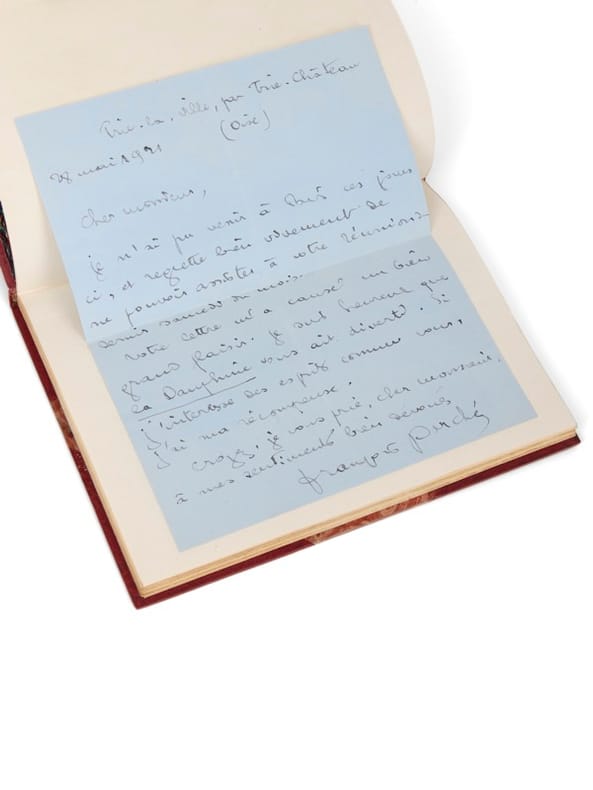 Trie-la-ville, par Trie-Château
(Oise)
28 mai 1921
Cher monsieur,
je n'ai pu venir à Paris ces jours
ci, et regrette bien vivement de
ne pouvoir assister à votre réunion
dernier samedi du mois.
votre lettre m'a causé un bien
grand plaisir. je suis heureux que
la Dauphine vous ait diverti. Si
j'intéresse des esprits comme vous,
j'ai ma récompense.
croyez, je vous prie, cher monsieur,
à mes sentiments bien dévoués
françois Porché